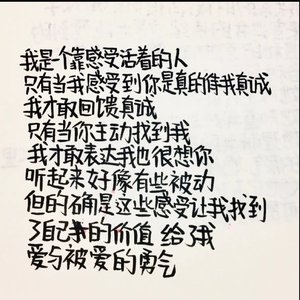 我是个靠感受活着的人
只有当我感受到你是真的待我真诚
我才敢回馈真诚
只有当你主动找到我
我才敢表达我也很想你
听起来好像有些被动
但的确是这些感受让我找到
了自己的价值 给了我
爱与被爱的勇气